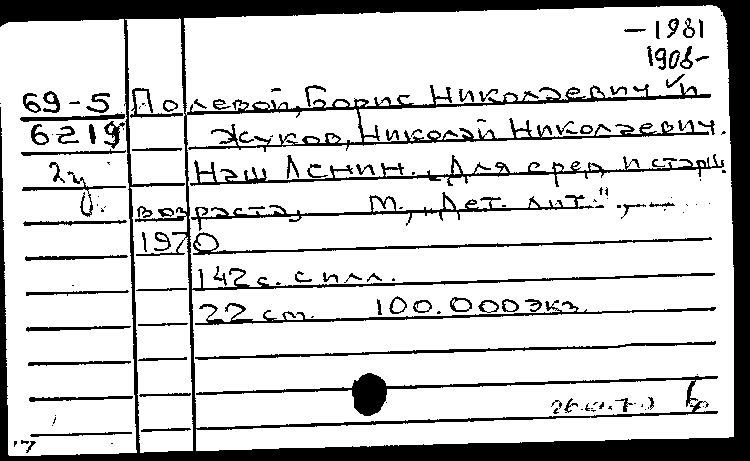 — 1981
1908-
69-5 Полевой, Борис Николаевич и
6219 Жуков, Николай Николаевич.
2у Наш Ленин. Для сред. и старш.
возраста, М., „Дет. лит.",
1970.
142 с. с илл.
22 cm. 100.000 экз.